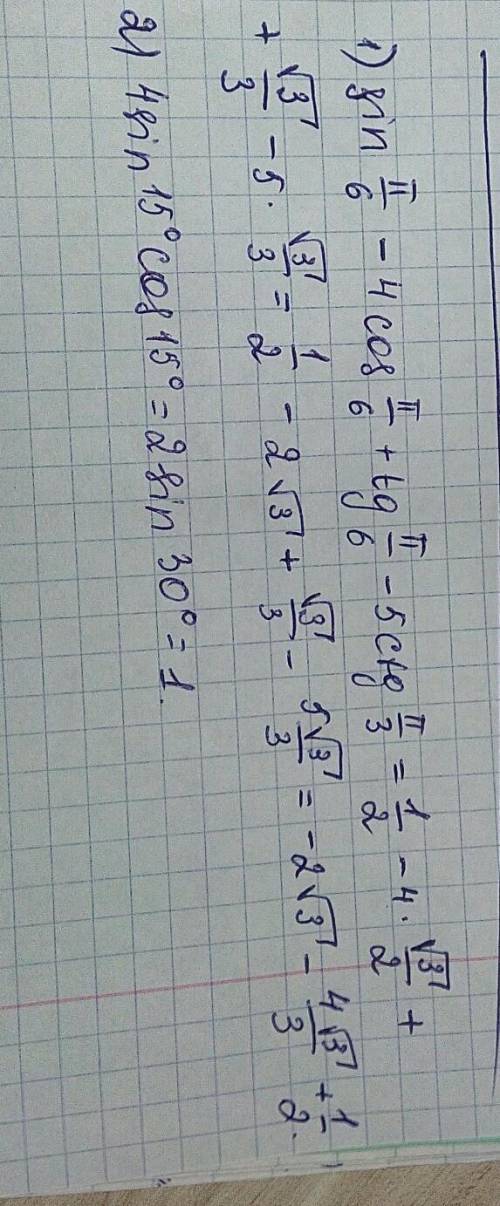 1) sin π/6 − 4cos π/6 + tg π/6 − 5ctg π/3 = 1/2 − 4·√3/2 +
+ √3/3 − 5·√3/3 = 1/2 − 2√3 + √3/3 − 5√3/3 = −2√3 − 4√3/3 + 1/2.
2) 4sin 15° cos 15° = 2 sin 30° = 1.